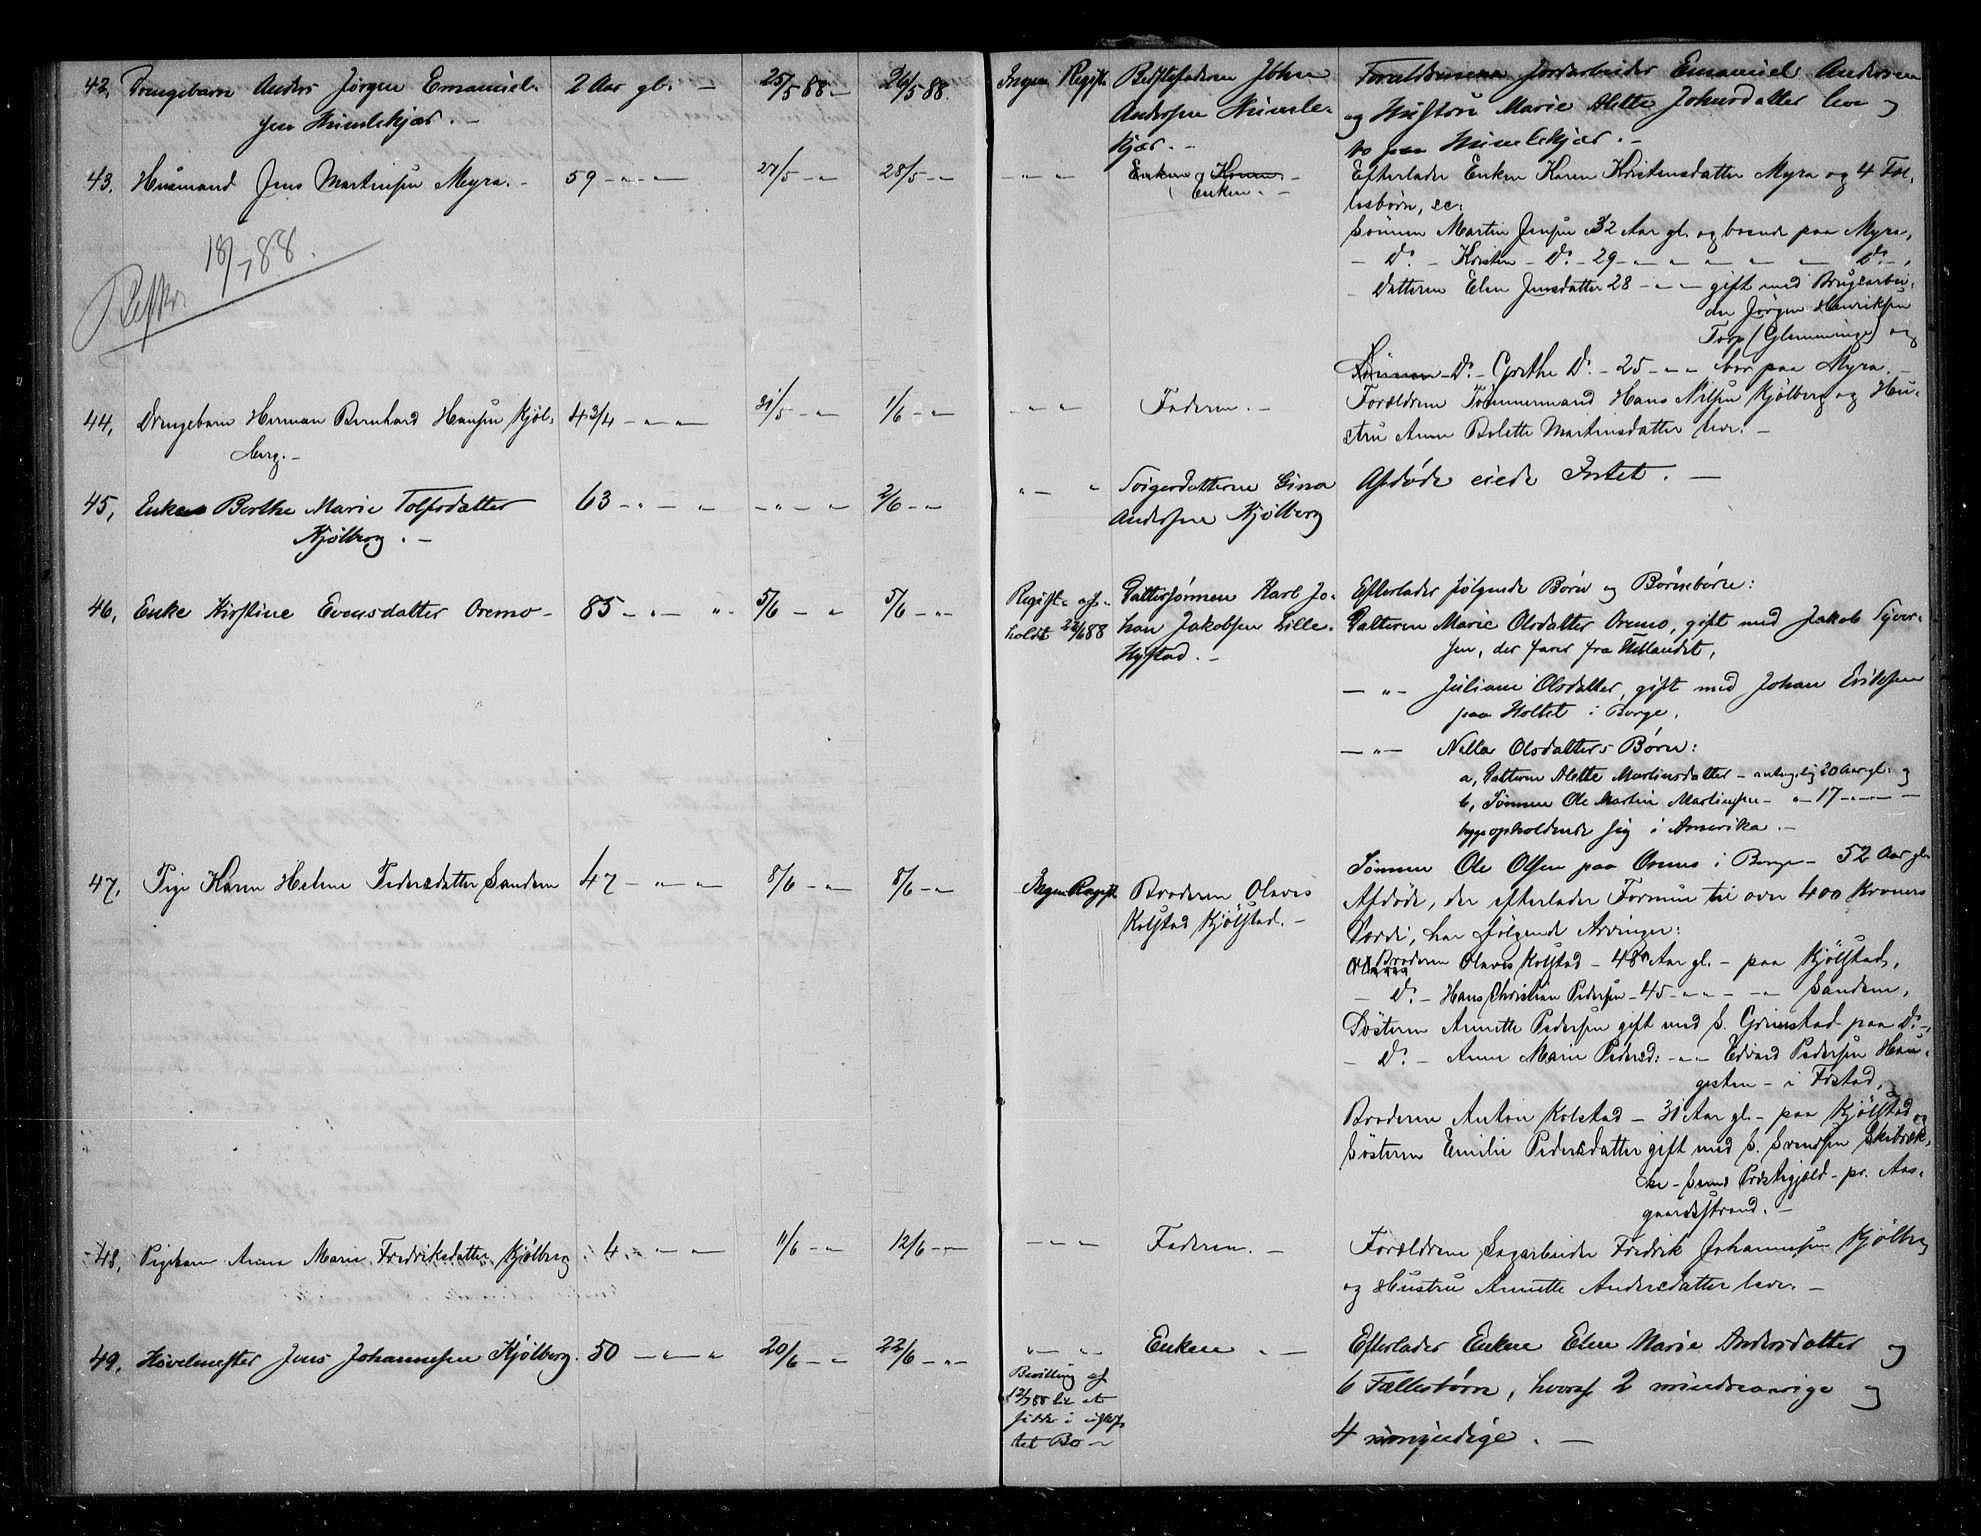 42. Drengebarn Anders Jørgen Emanuel-
sen Humlekjær. -
2 Aar gl. -
25/5 88 -
26/5 88.
Ingen Regist.
Bedstefaderen Johan
Andersen Humle-
kjær. -
Forældrene Jordarbeider Emanuel Andersen
og Hustru Marie Alette Johnsdatter leve og
bo paa Humlekjær. -
43. Husmand Jens Martinsen Myra. -
59 - " -
27/5 - "
28/5 - "
- " -
Enken
Enken. -
Efterlader Enken Karen Kristensdatter Myra og 4 Fæl-
lesbørn, sc:
Sønnen Martin Jensen 32 Aar gl. og boende paa Myra,
- Do. - Kristen - Do. - 29 - " - " - " - Do. -,
- Datteren Elen Jensdatter 28 - " - gift med Brugsarbei-
der Jørgen Henriksen
Torp (Glemminge) og
Sønnen - Do. - Grethe Do. - 25 - " - bor paa Myra. -
18/7 88.
44, Drengebarn Herman Bernhard Hansen Kjøl-
berg. -
4 3/4 - " -
31/5 - "
1/6 - "
- " -
Faderen. -
Forældrene Tømmermand Hans Nilsen Kjølberg og Hu-
stru Anne Bolette Martinsdatter leve. -
45, Enke Berthe Marie Tolfsdatter
Kjølberg. -
63 - " - "
- " - "
2/6 - "
" - "
Svigerdatteren Gina
Andersen Kjølberg
Afdøde eiede Intet. -
46, Enke Kirstine Evensdatter Oremo -
85 - " - "
5/6 - "
5/6 - "
Regist. af-
holdt 22/6 88
Dattersønnen Karl Jo-
han Jakobsen Lille-
Hystad. -
Efterlader følgende Børn og Børnebørn:
Datteren Marie Olsdatter Oremo, gift med Jakob Syver-
sen, der farer fra Udlandet,
- " - Juliane Olsdatter, gift med Johan Eriksen
paa Holtet i Borge,
- " - Nella Olsdatters Børn:
a, Datteren Alette Martinsdatter - antagelig 20 Aar gl. og
b, Sønnen Ole Martin Martinsen - " - 17 - " -
begge opholdende sig i Amerika. -
Sønnen Ole Olsen paa Oremo i Borge - 52 Aar gl.
47, Pige Karen Helene Pedersdatter Sandem
47 - " - "
8/6 - "
8/6 - "
Ingen Regist.
Broderen Olavis
Kolstad Kjølstad. -
Afdøde, der efterlader Formue til over 400 Kroners
Værdi, har følgende Arvinger:
Broderen Olavis Kolstad - 48 Aar gl. - paa Kjølstad,
- Do. - Hans Christian Pedersen - 45 - " - " - Sandem,
Søsteren Annette Pedersen gift med S. Grimstad paa Do. -,
- Do. - Anne Marie Pedersd: - " - Edvard Pedersen Hau-
gesten - i Idstad,
Broderen Anton Kolstad - 31 Aar gl. - paa Kjølstad og
Søsteren Emilie Pedersdatter gift med S. Svendsen Skibræk-
ke - Præstegjæld - pr. Aas-
gaardsstrand. -
48, Pigebarn Anna Marie Fredriksdatter Kjølberg
4 - " -
11/6 - "
12/6 - "
- " -
Faderen. -
Forældrene Sagarbeider Fredrik Johannesen Kjølberg
og Hustru Annette Andersdatter leve. -
49, Høvelmester Jens Johannesen Kjølberg.
50 - " - "
20/6 - "
22/6 - "
" - "
Bevilling af
12/7 88 til at
sidde i uskif-
tet Bo -
Enken " -
Efterlader Enken Elen Marie Andersdatter og
6 Fællesbørn, hvoraf 2 mindreaarige og
4 myndige. -